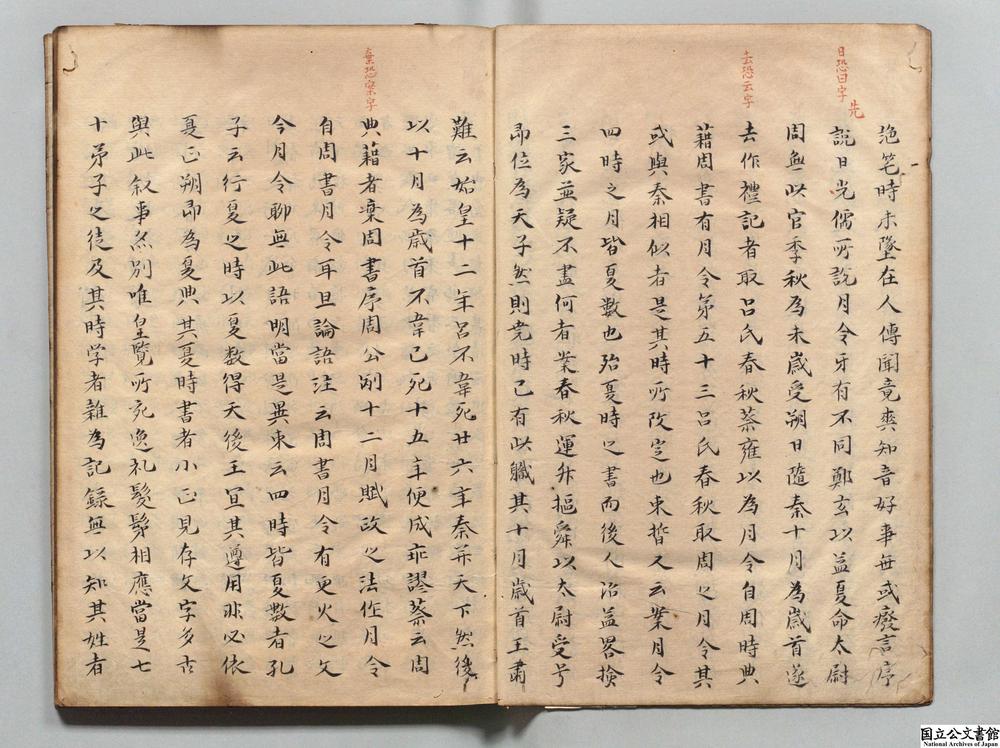 日恐曰字
先
去恐云字
絶笔時未墜在人傳聞竟爽知音好事毎或癈言序
說日光儒所說月令牙有不同鄭玄以益夏命太尉
周無此官季秋為未歲受朔日隨秦十月為歲首遂
去作禮記者取呂氏春秋蔡雍以為月令自周時典
藉周書有月令第五十三呂氏春秋取周之月令其
或與秦相似者是其時所改定也束皙又云案月令
四時之月皆夏數也殆夏時之書而後人治益畧撿
三家並疑不盡何者案春秋運斗摳舜以太尉受号
即位為天子然則尭時已有此軄其十月歲首王肅
棄恐案字
難云始皇十二年呂不韋死廿六年秦并天下然後
以十月為歲首不韋已死十五年便成乖謬蔡云周
典藉者棄周書序周公制十二月賦政之法作月令
自周書月令耳且論語注云周書月令有更火之文
今月令聊無此語明當是異束云四時皆夏數者孔
子云行夏之時以夏数得天後王冝其遵用非必依
夏正朔即為夏典其夏時書者小正見存文字多古
與此叙事烝別唯皇覽所死逸礼髮髴相應當是七
十弟子之徒及其時学者雜為記錄無以知其姓者
国立公文書館
National Archives of Japan